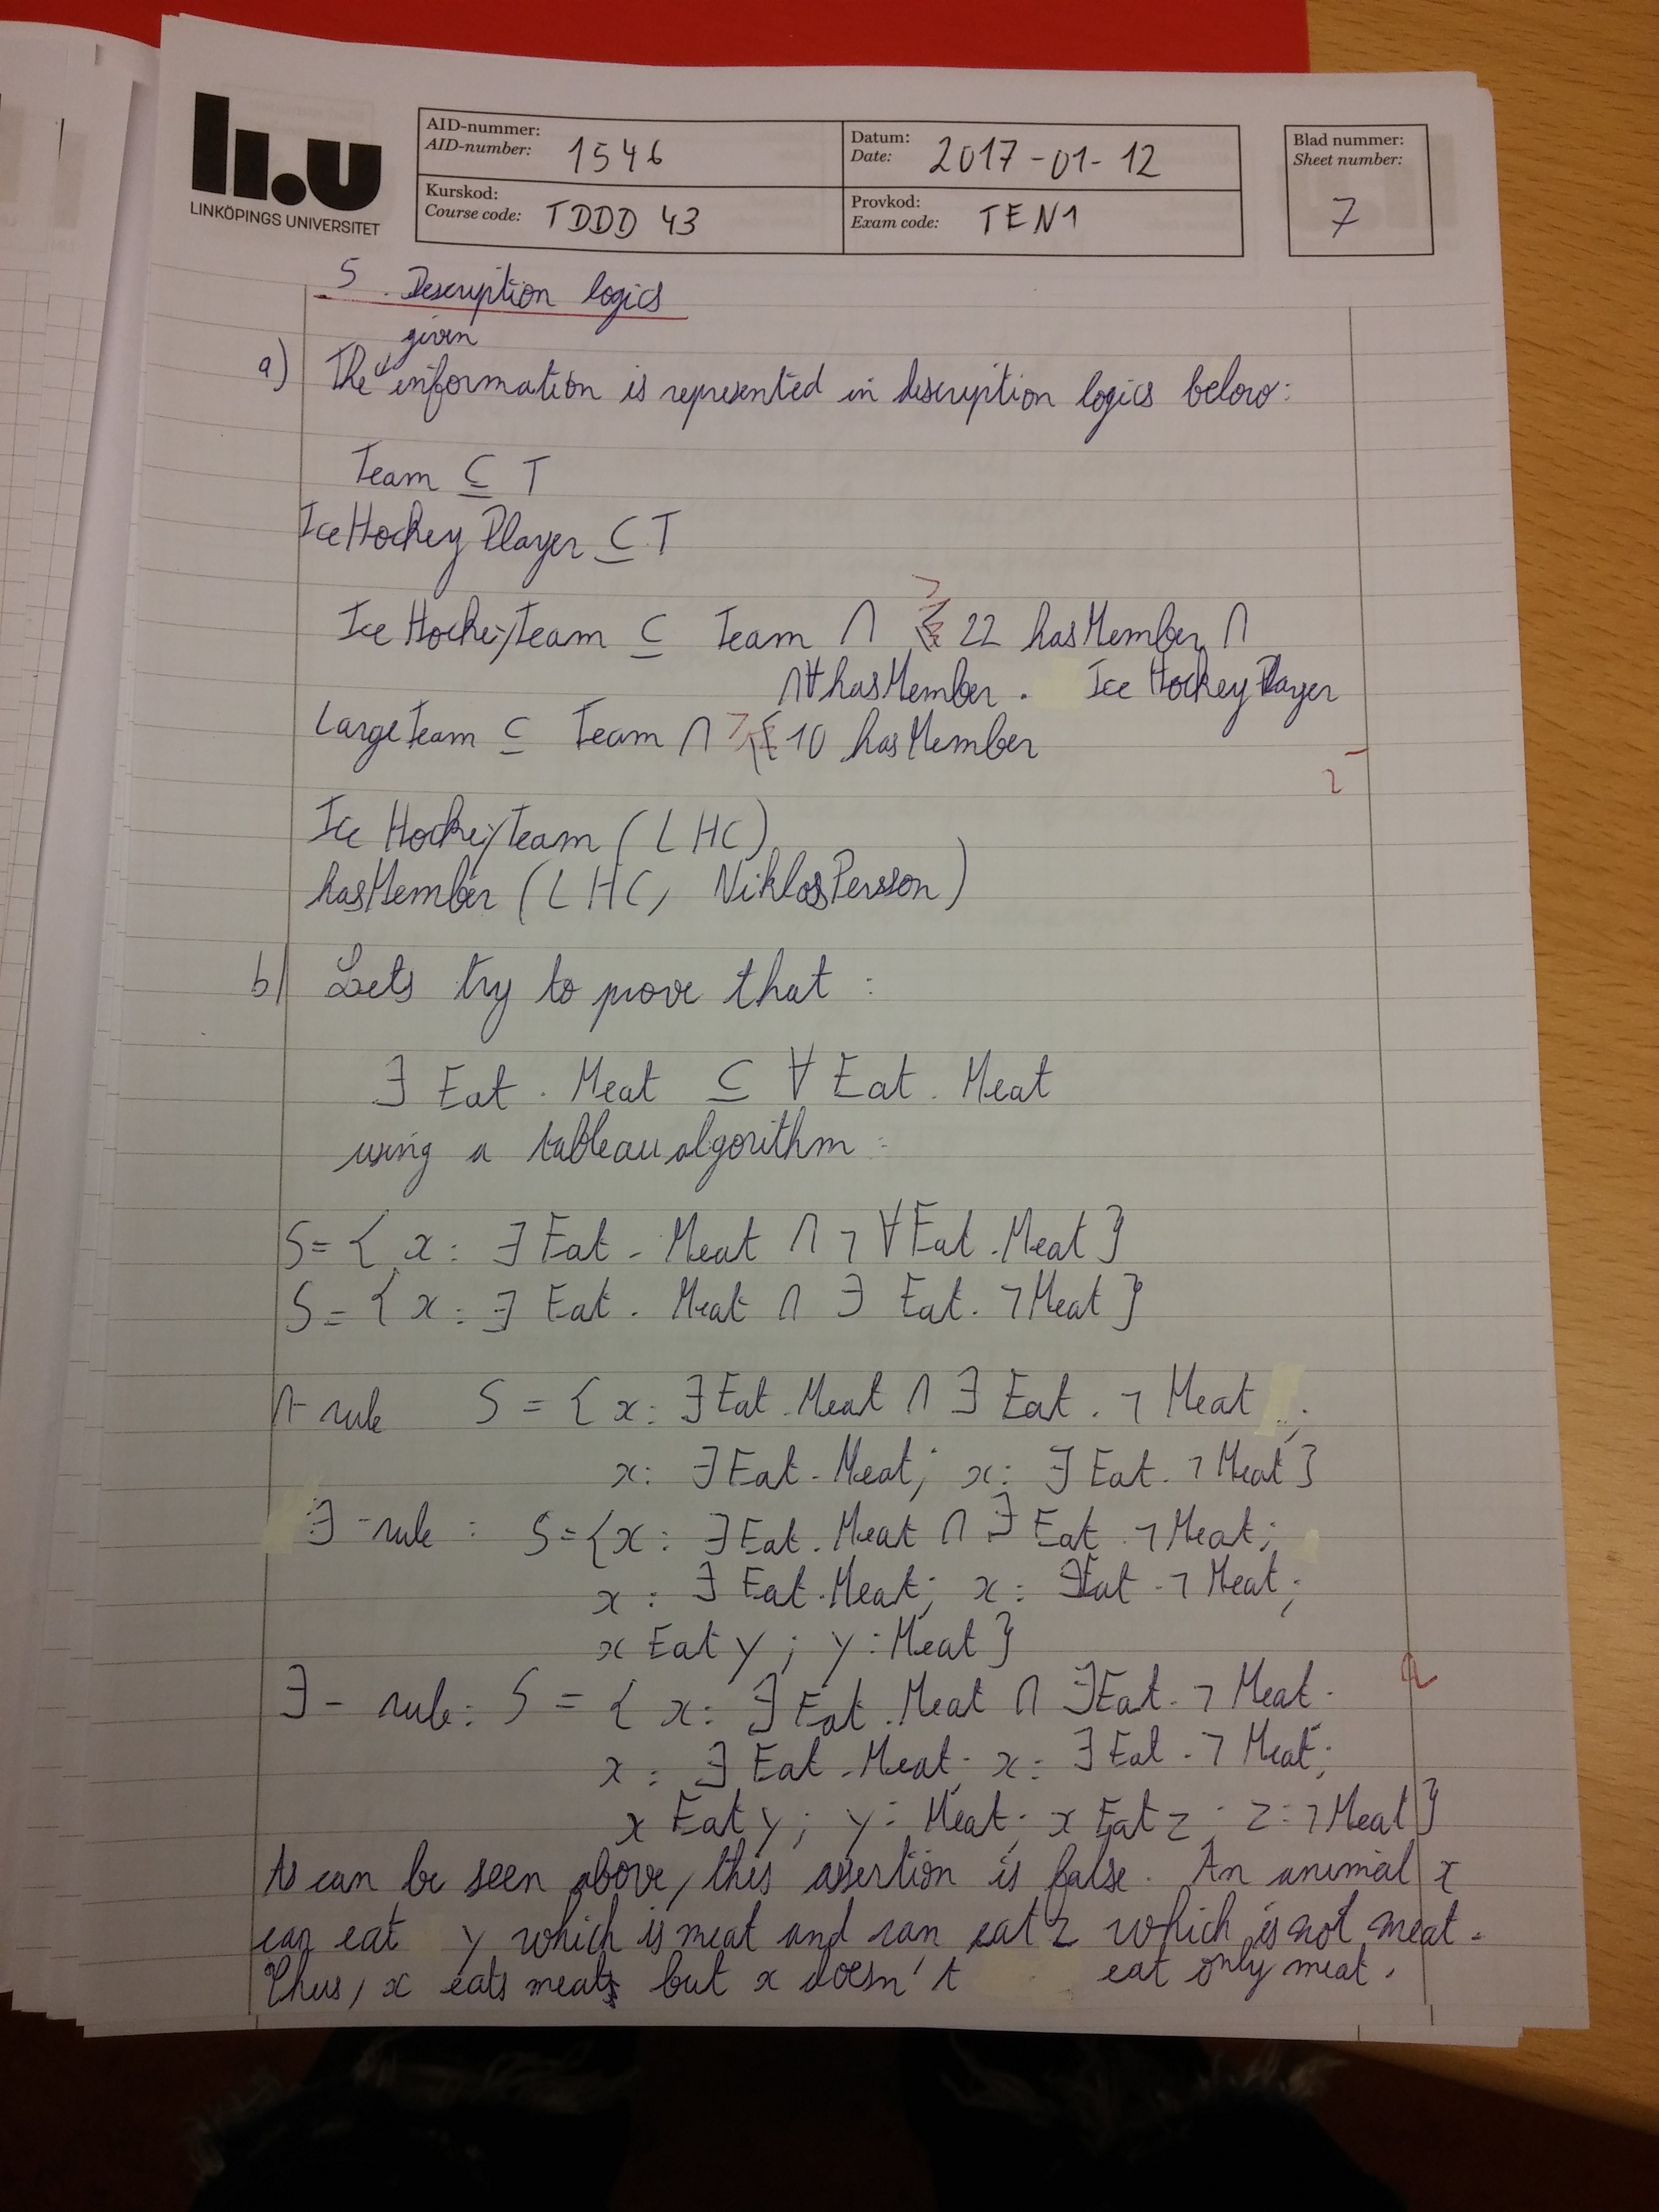 li.u
LINKÖPINGS UNIVERSITET
AID-nummer:
AID-number: 1546
Datum:
Date: 2017-01-12
Blad nummer:
Sheet number:
7
Kurskod:
Course code: TDDD 43
Provkod:
Exam code: TEN1
5. Description logics
given
a) The information is represented in description logics below:
Team ⊆ T
IceHockeyPlayer ⊆ T
IceHockeyTeam ⊆ Team ∩ 22 hasMember ∩
∩ ∀hasMember . IceHockeyPlayer
LargeTeam ⊆ Team ∩ 10 hasMember
2-
IceHockeyTeam (LHC)
hasMember (LHC, NiklasPersson)
b) Lets try to prove that :
∃ Eat . Meat ⊆ ∀ Eat . Meat
using a tableau algorithm :
S = { x : ∃ Eat . Meat ∩ ¬ ∀ Eat . Meat }
S = { x : ∃ Eat . Meat ∩ ∃ Eat . ¬Meat }
∩-rule S = { x : ∃ Eat . Meat ∩ ∃ Eat . ¬ Meat ;
x : ∃ Eat . Meat ; x : ∃ Eat . ¬ Meat }
∃-rule : S = { x : ∃ Eat . Meat ∩ ∃ Eat . ¬ Meat ;
x : ∃ Eat . Meat ; x : ∃ Eat . ¬ Meat ;
x Eat y ; y : Meat }
∃-rule : S = { x : ∃ Eat . Meat ∩ ∃ Eat . ¬ Meat .
x : ∃ Eat . Meat ; x : ∃ Eat . ¬ Meat ;
x Eat y ; y : Meat ; x Eat z ; z : ¬ Meat }
As can be seen above, this assertion is false. An animal x
can eat y which is meat and can eat z which is not meat.
Thus, x eats meat, but x doesn't eat only meat.